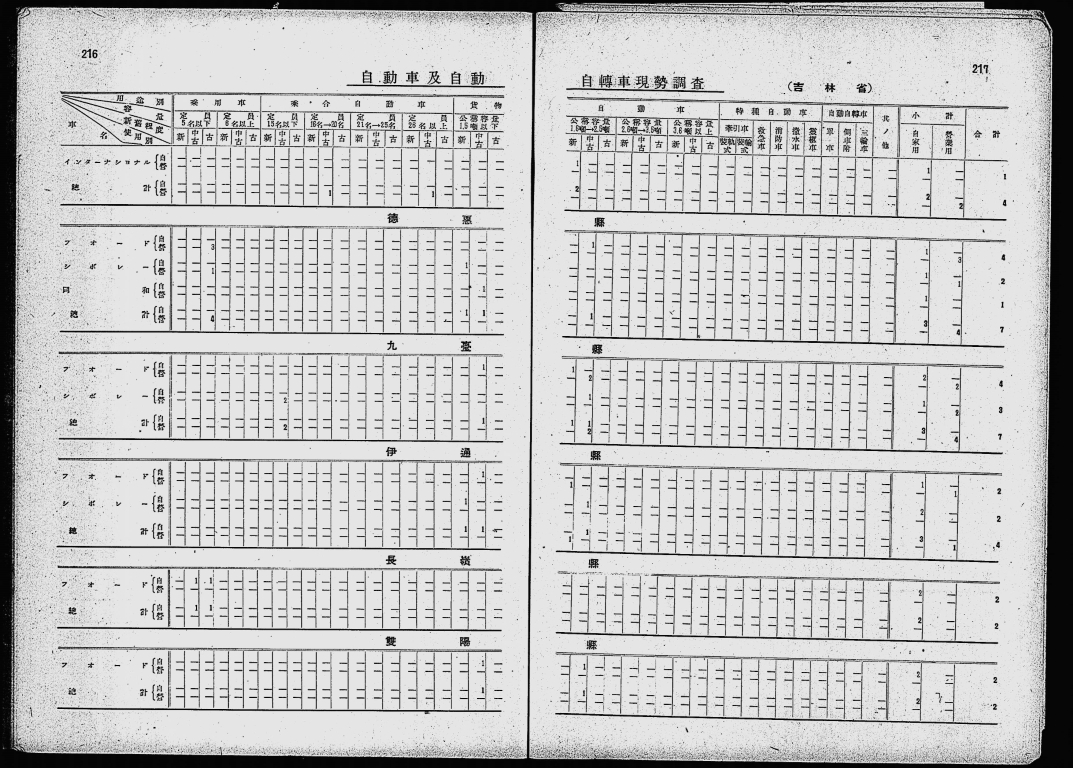 216
自動車及自動
用途別
容量
新舊程度
使用別
車名
乘用車
乘合自動車
貨物
定員5名以下
定員6名以上
定員15名以下
定員16名→20名
定員21名→25名
定員26名以上
公稱容量1.5噸以下
新 中古 古 新 中古 古 新 中古 古 新 中古 古 新 中古 古 新 中古 古 新 中古 古
インターナショナル{自營
總計{自營 1 1
德惠
フオード{自營 3
シボレー{自營 1 1
同和{自營 1
總計{自營 4 1 1
九臺
フオード{自營 1
シボレー{自營 2
總計{自營 2 1
伊通
フオード{自營 1
シボレー{自營 1
總計{自營 1 1
長嶺
フオード{自營 1 1
總計{自營 1 1
雙陽
フオード{自營 1
總計{自營 1
217
自轉車現勢調査
(吉林省)
自動車
特種自動車
自動自轉車
其ノ他
小計
合計
公稱容量
公稱容量
公稱容量
牽引車
裝軌式
裝輪式
救急車
消防車
撒水車
靈柩車
單車
側車附
三輪車
自家用
營業用
新 中古 古 新 中古 古 新 中古 古
1 1 1
2 2 2 4
縣
1 1 3 4
1 1 2
1 1
1 3 4 7
縣
1 2 2 2 4
1 1 2 3
1 1 2 3 4 7
縣
1 1 1 2
1 2 2
1 1 3 1 4
縣
2 2
2 2
縣
1 2 2
1 2 2